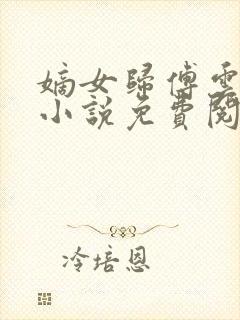 嫡女歸傅雲
小說免費閱
冷培恩